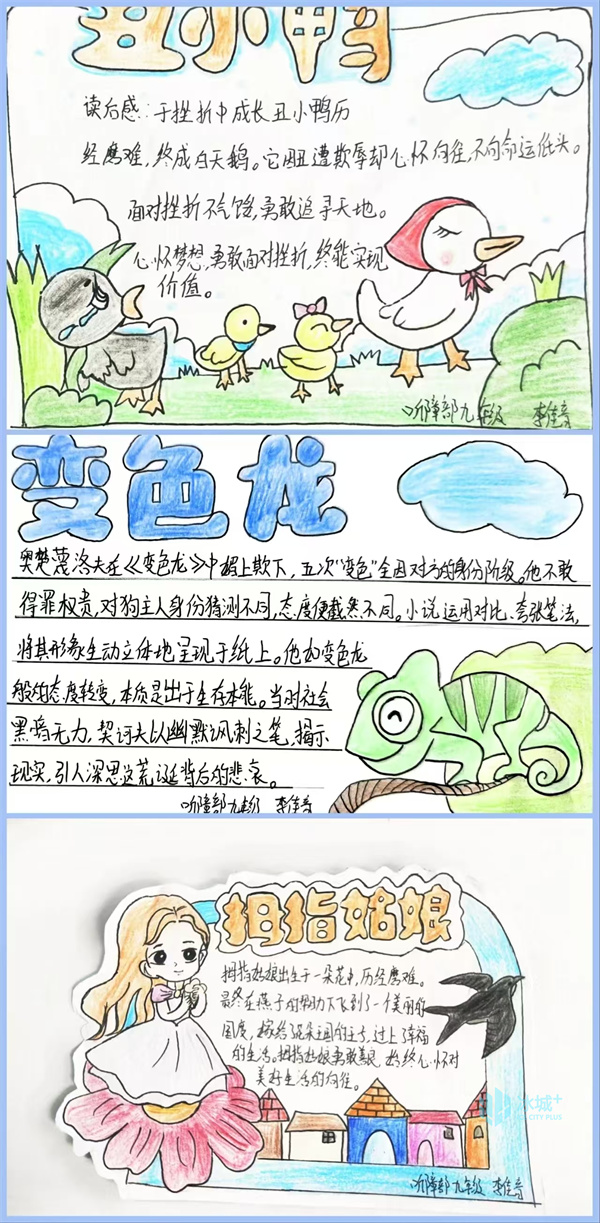 丑小鸭
读后感:于挫折中成长丑小鸭历
经磨难,终成白天鹅。它因丑遭欺辱却心怀向往,不向命运低头。
面对挫折不气馁,勇敢追寻天地。
心怀梦想,勇敢面对挫折,终能实现
价值。
听障部九年级 李佳音
变色龙
奥楚蔑洛夫在《变色龙》中媚上欺下,五次"变色"全因对方的身份阶级。他不敢
得罪权贵,对狗主人身份猜测不同,态度便截然不同。小说运用对比、夸张笔法,
将其形象生动立体地呈现于纸上。他如变色龙
般的态度转变,本质是出于生存本能。当时社会
黑暗无力,契诃夫以幽默讽刺之笔,揭示
现实,引人深思这荒诞背后的悲哀。
听障部九年级 李佳音
拇指姑娘
拇指姑娘出生于一朵花中,历经磨难。
最终在燕子的帮助下飞到了一个美丽的
国度,嫁给了花朵王国的王子,过上了幸福
的生活。拇指姑娘勇敢善良,始终心怀对
美好生活的向往。
冰城+
CITY PLUS
听障部九年级 李佳音